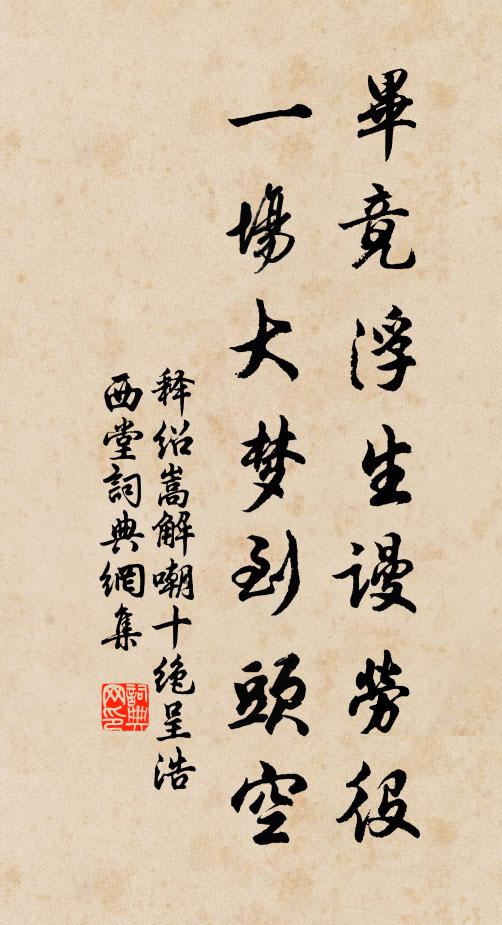 畢竟浮生謾勞役
一場大梦到頭空
释绍嵩解嘲十绝呈浩
西堂詞典網集
詞典网印